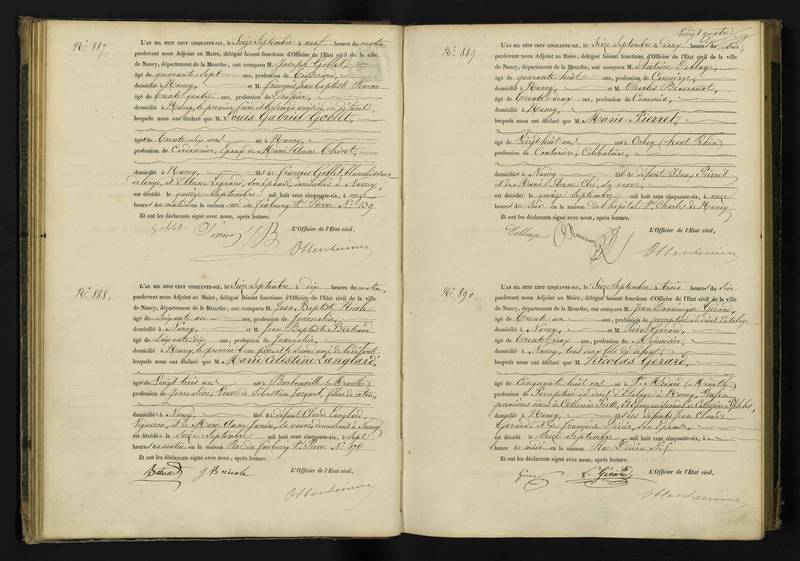 No. 887.
L'AN MIL HUIT CENT CINQUANTE-SIX, le Seize Septembre à neuf heures du matin,
pardevant nous Adjoint au Maire, délégué faisant fonctions d'Officier de l'Etat civil de la ville
de Nancy, département de la Meurthe, ont comparu M. Joseph Goblet,
âgé de quarante sept ans, profession de Tisserand,
domicilié à Nancy, et M. François Jean Baptiste Simon
âgé de trente quatre ans, profession de Drapier,
domicilié à Nancy, le premier frère et le second voisin du défunt,
lesquels nous ont déclaré que M. Louis Gabriel Goblet,
âgé de trente six ans né à Nancy,
profession de Cordonnier, époux de Marie Anne Thirot,
domicilié à Nancy, fils de François Goblet, blanchisseur
de linge, et d'
est décédé le quinze Septembre mil huit cent cinquante-six, à onze
heures du matin en la maison rue du faubourg St. Pierre No. 139
Et ont les déclarants signé avec nous, après lecture.
Goblet Simon L'Officier de l'Etat civil,
Ottenheimer
No. 888.
L'AN MIL HUIT CENT CINQUANTE-SIX, le Seize Septembre à dix heures du matin,
pardevant nous Adjoint au Maire, délégué faisant fonctions d'Officier de l'Etat civil de la ville
de Nancy, département de la Meurthe, ont comparu M. Jean Baptiste
âgé de soixante ans, profession de Journalier,
domicilié à Nancy, et M. Jean Baptiste Bertrand
âgé de soixante dix ans, profession de Journalier,
domicilié à Nancy, le premier beau père et le second ami de la défunte
lesquels nous ont déclaré que M. Marie Célestine Langlard,
âgée de Vingt trois ans née à Badonviller (Meurthe)
profession de Journalière, Veuve de Sébastien Jacquot, fileur de coton,
domiciliée à Nancy, fille de défunt Claude Langlard,
Vigneron, et de Marie Anne Janin, sa veuve, demeurant à Nancy
est décédée le Seize Septembre mil huit cent cinquante-six, à sept
heures du matin en la maison rue du faubourg St. Pierre No. 176
Et ont les déclarants signé avec nous, après lecture.
L'Officier de l'Etat civil,
Ottenheimer
Vingt quatre
No. 889
L'AN MIL HUIT CENT CINQUANTE-SIX, le Seize Septembre à deux heures du soir,
pardevant nous Adjoint au Maire, délégué faisant fonctions d'Officier de l'Etat civil de la ville
de Nancy, département de la Meurthe, ont comparu M. Delhaye,
âgé de quarante huit ans, profession de Concierge,
domicilié à Nancy, et M. Charles
âgé de trente deux ans, profession de Commis,
domicilié à Nancy,
lesquels nous ont déclaré que M. Marie Pierret,
âgée de Vingt huit ans née à Orbey (haut Rhin)
profession de Couturière, Célibataire,
domiciliée à Nancy fille de défunt Pierret
et de Marie Anne sa veuve
est décédée le quinze Septembre mil huit cent cinquante-six, à onze
heures du soir en la maison de l'hôpital St. Charles de Nancy
Et ont les déclarants signé avec nous, après lecture.
Delhaye L'Officier de l'Etat civil,
Ottenheimer
No. 890.
L'AN MIL HUIT CENT CINQUANTE-SIX, le Seize Septembre à trois heures du soir
pardevant nous Adjoint au Maire, délégué faisant fonctions d'Officier de l'Etat civil de la ville
de Nancy, département de la Meurthe, ont comparu M. Jean Dominique Gérard,
âgé de trente un ans, profession de percepteur du droit d'étalage
domicilié à Nancy, et M. Gérard,
âgé de trente deux ans, profession de Menuisier,
domicilié à Nancy, tous deux fils du défunt,
lesquels nous ont déclaré que M. Nicolas Gérard,
âgé de Cinquante huit ans né à St. Médard (Meurthe)
profession de Percepteur du droit d'étalage à Nancy, Veuf en
premières noces de Catherine et époux survivant de Catherine
domicilié à Nancy, fils de défunts Jean Claude
Gérard, et de Françoise son épouse,
est décédé le Seize Septembre mil huit cent cinquante-six, à
heures de midi en la maison Rue No. 5
Et ont les déclarants signé avec nous, après lecture.
Gérard L'Officier de l'Etat civil,
Ottenheimer